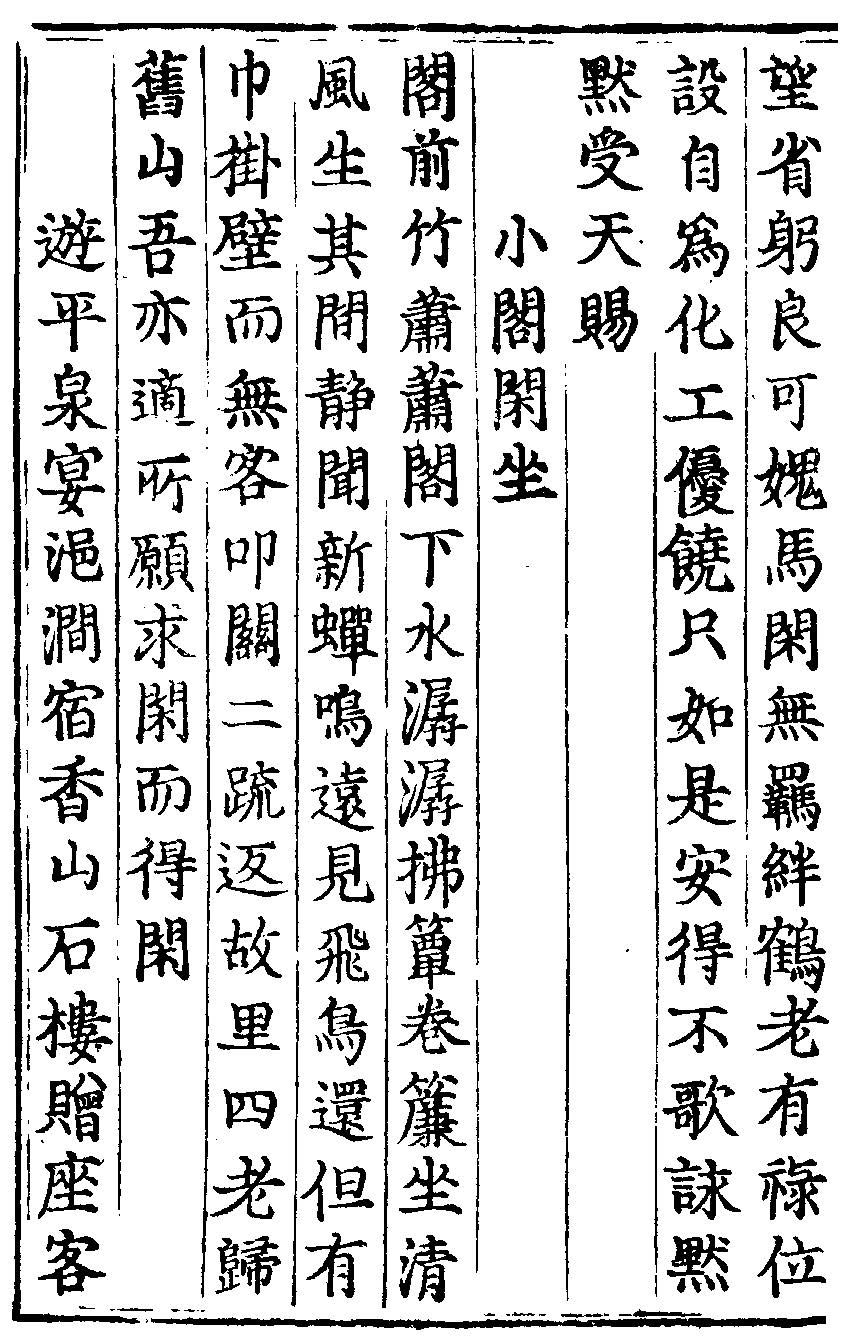 望省躬良可媿馬閑無羈絆鶴老有祿位
設自爲化工優饒只如是安得不歌詠黙
黙受天賜
小閤閑坐
閤前竹蕭蕭閤下水潺潺拂簟卷簾坐清
風生其閒静聞新蟬鳴遠見飛鳥還但有
巾掛壁而無客叩關二疏返故里四老歸
舊山吾亦適所願求閑而得閑
遊平泉宴浥澗宿香山石樓贈座客